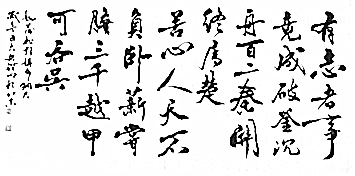 有志者事
竟成破釜沉
舟百二秦關
終屬楚
苦心人天不
負卧薪嘗
膽三千越甲
可吞吳